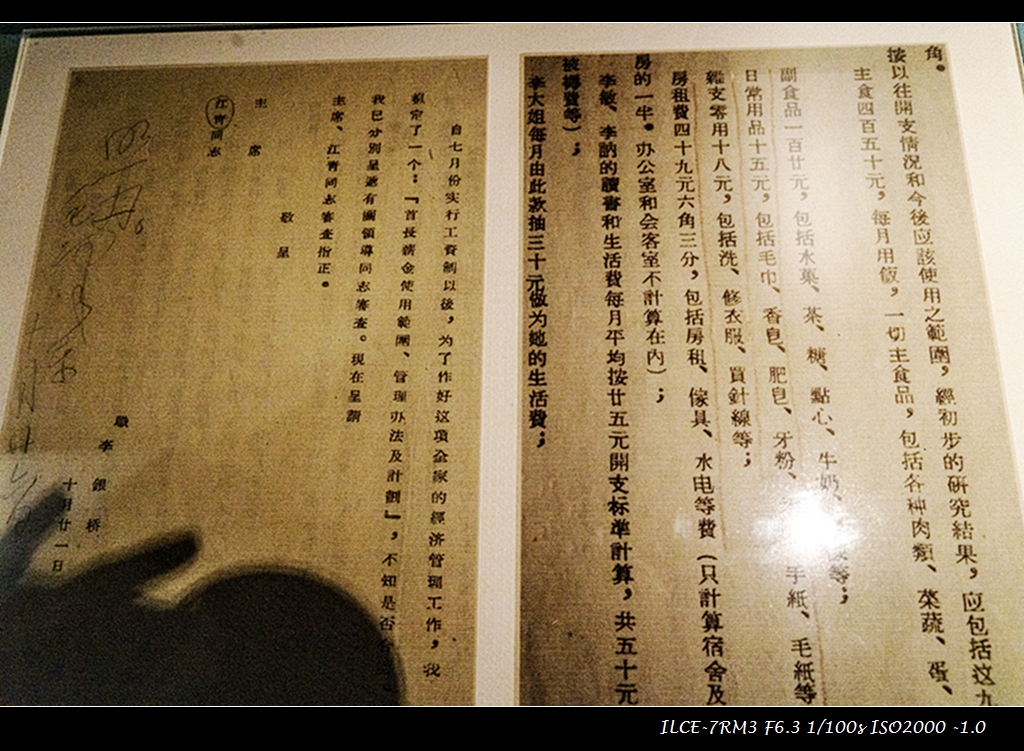 主席
江青同志
自七月份实行工資制以後，为了作好这項全家的經济管理工作，我
擬定了一个：『首長薪金使用範圍、管理办法及計劃』，不知是否
我已分别呈遞有關領導同志審查。現在呈請
主席、江青同志審查指正。
敬
呈
職李銀桥
十月廿一日
照办。
角。
按以往開支情況和今後应該使用之範圍，經初步的研究結果，应包括这九
主食四百五十元，每月用飯，一切主食品，包括各种肉類、菜蔬、蛋、
等；
副食品一百廿元，包括水菓、茶、糖、點心、牛奶、
日常用品十五元，包括毛巾、香皂、肥皂、牙粉、手紙、毛紙等
雜支零用十八元，包括洗、修衣服、買針線等；
房租費四十九元六角三分，包括房租、傢具、水电等費（只計算宿舍及
房的一半。办公室和会客室不計算在內）；
李敏、李訥的讀書和生活費每月平均按廿五元開支标準計算，共五十元
被褥費等）；
李大姐每月由此款抽三十元做为她的生活費；
ILCE-7RM3 F6.3 1/100s ISO2000 -1.0